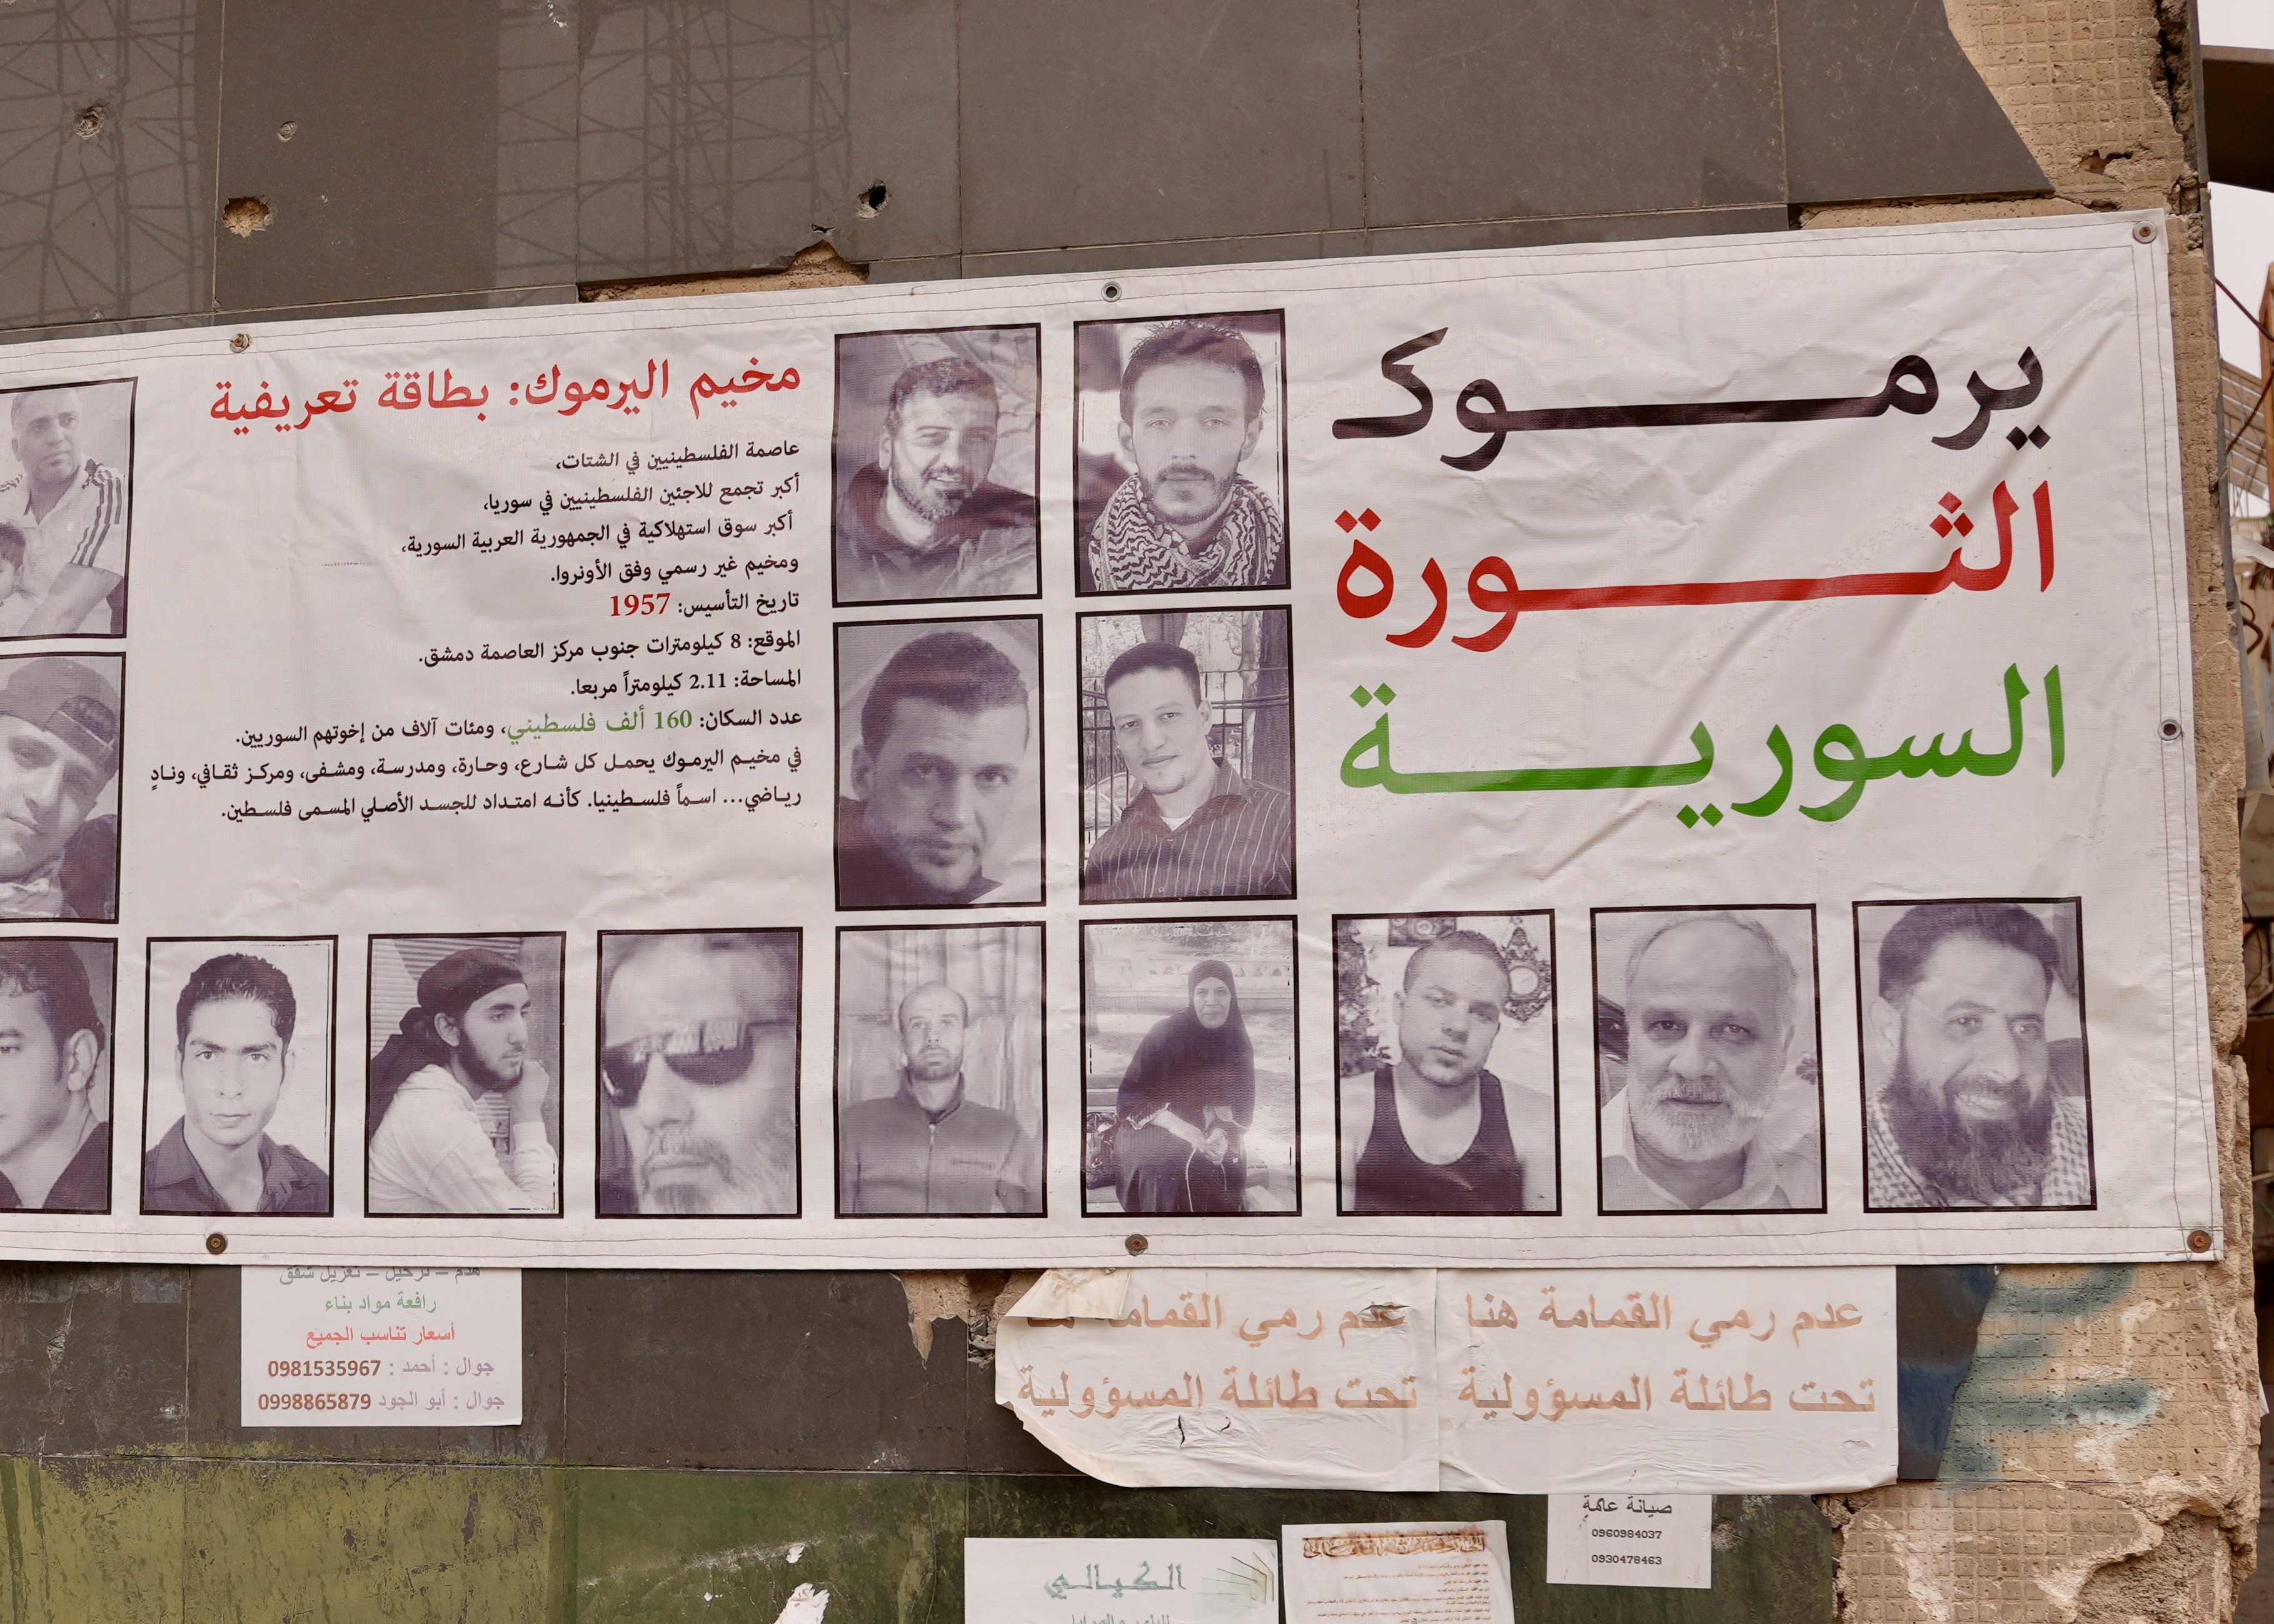 يرموك
الثورة
السورية
مخيم اليرموك: بطاقة تعريفية
عاصمة الفلسطينيين في الشتات،
أكبر تجمع للاجئين الفلسطينيين في سوريا،
أكبر سوق استهلاكية في الجمهورية العربية السورية،
ومخيم غير رسمي وفق الأونروا.
تاريخ التأسيس: 1957
الموقع: 8 كيلومترات جنوب مركز العاصمة دمشق.
المساحة: 2.11 كيلومتراً مربعا.
عدد السكان: 160 ألف فلسطيني، ومئات آلاف من إخوتهم السوريين.
في مخيم اليرموك يحمل كل شارع، وحارة، ومدرسة، ومشفى، ومركز ثقافي، ونادٍ
رياضي... اسماً فلسطينيا. كأنه امتداد للجسد الأصلي المسمى فلسطين.
عدم رمي القمامة هنا
تحت طائلة المسؤولية
عدم رمي القمامة
تحت طائلة المسؤولية
هدم – ترحيل – تعزيل شقق
رافعة مواد بناء
أسعار تناسب الجميع
جوال : أحمد : 0981535967
جوال : أبو الجود 0998865879
صيانة عامة
0960984037
0930478463
الكيالي